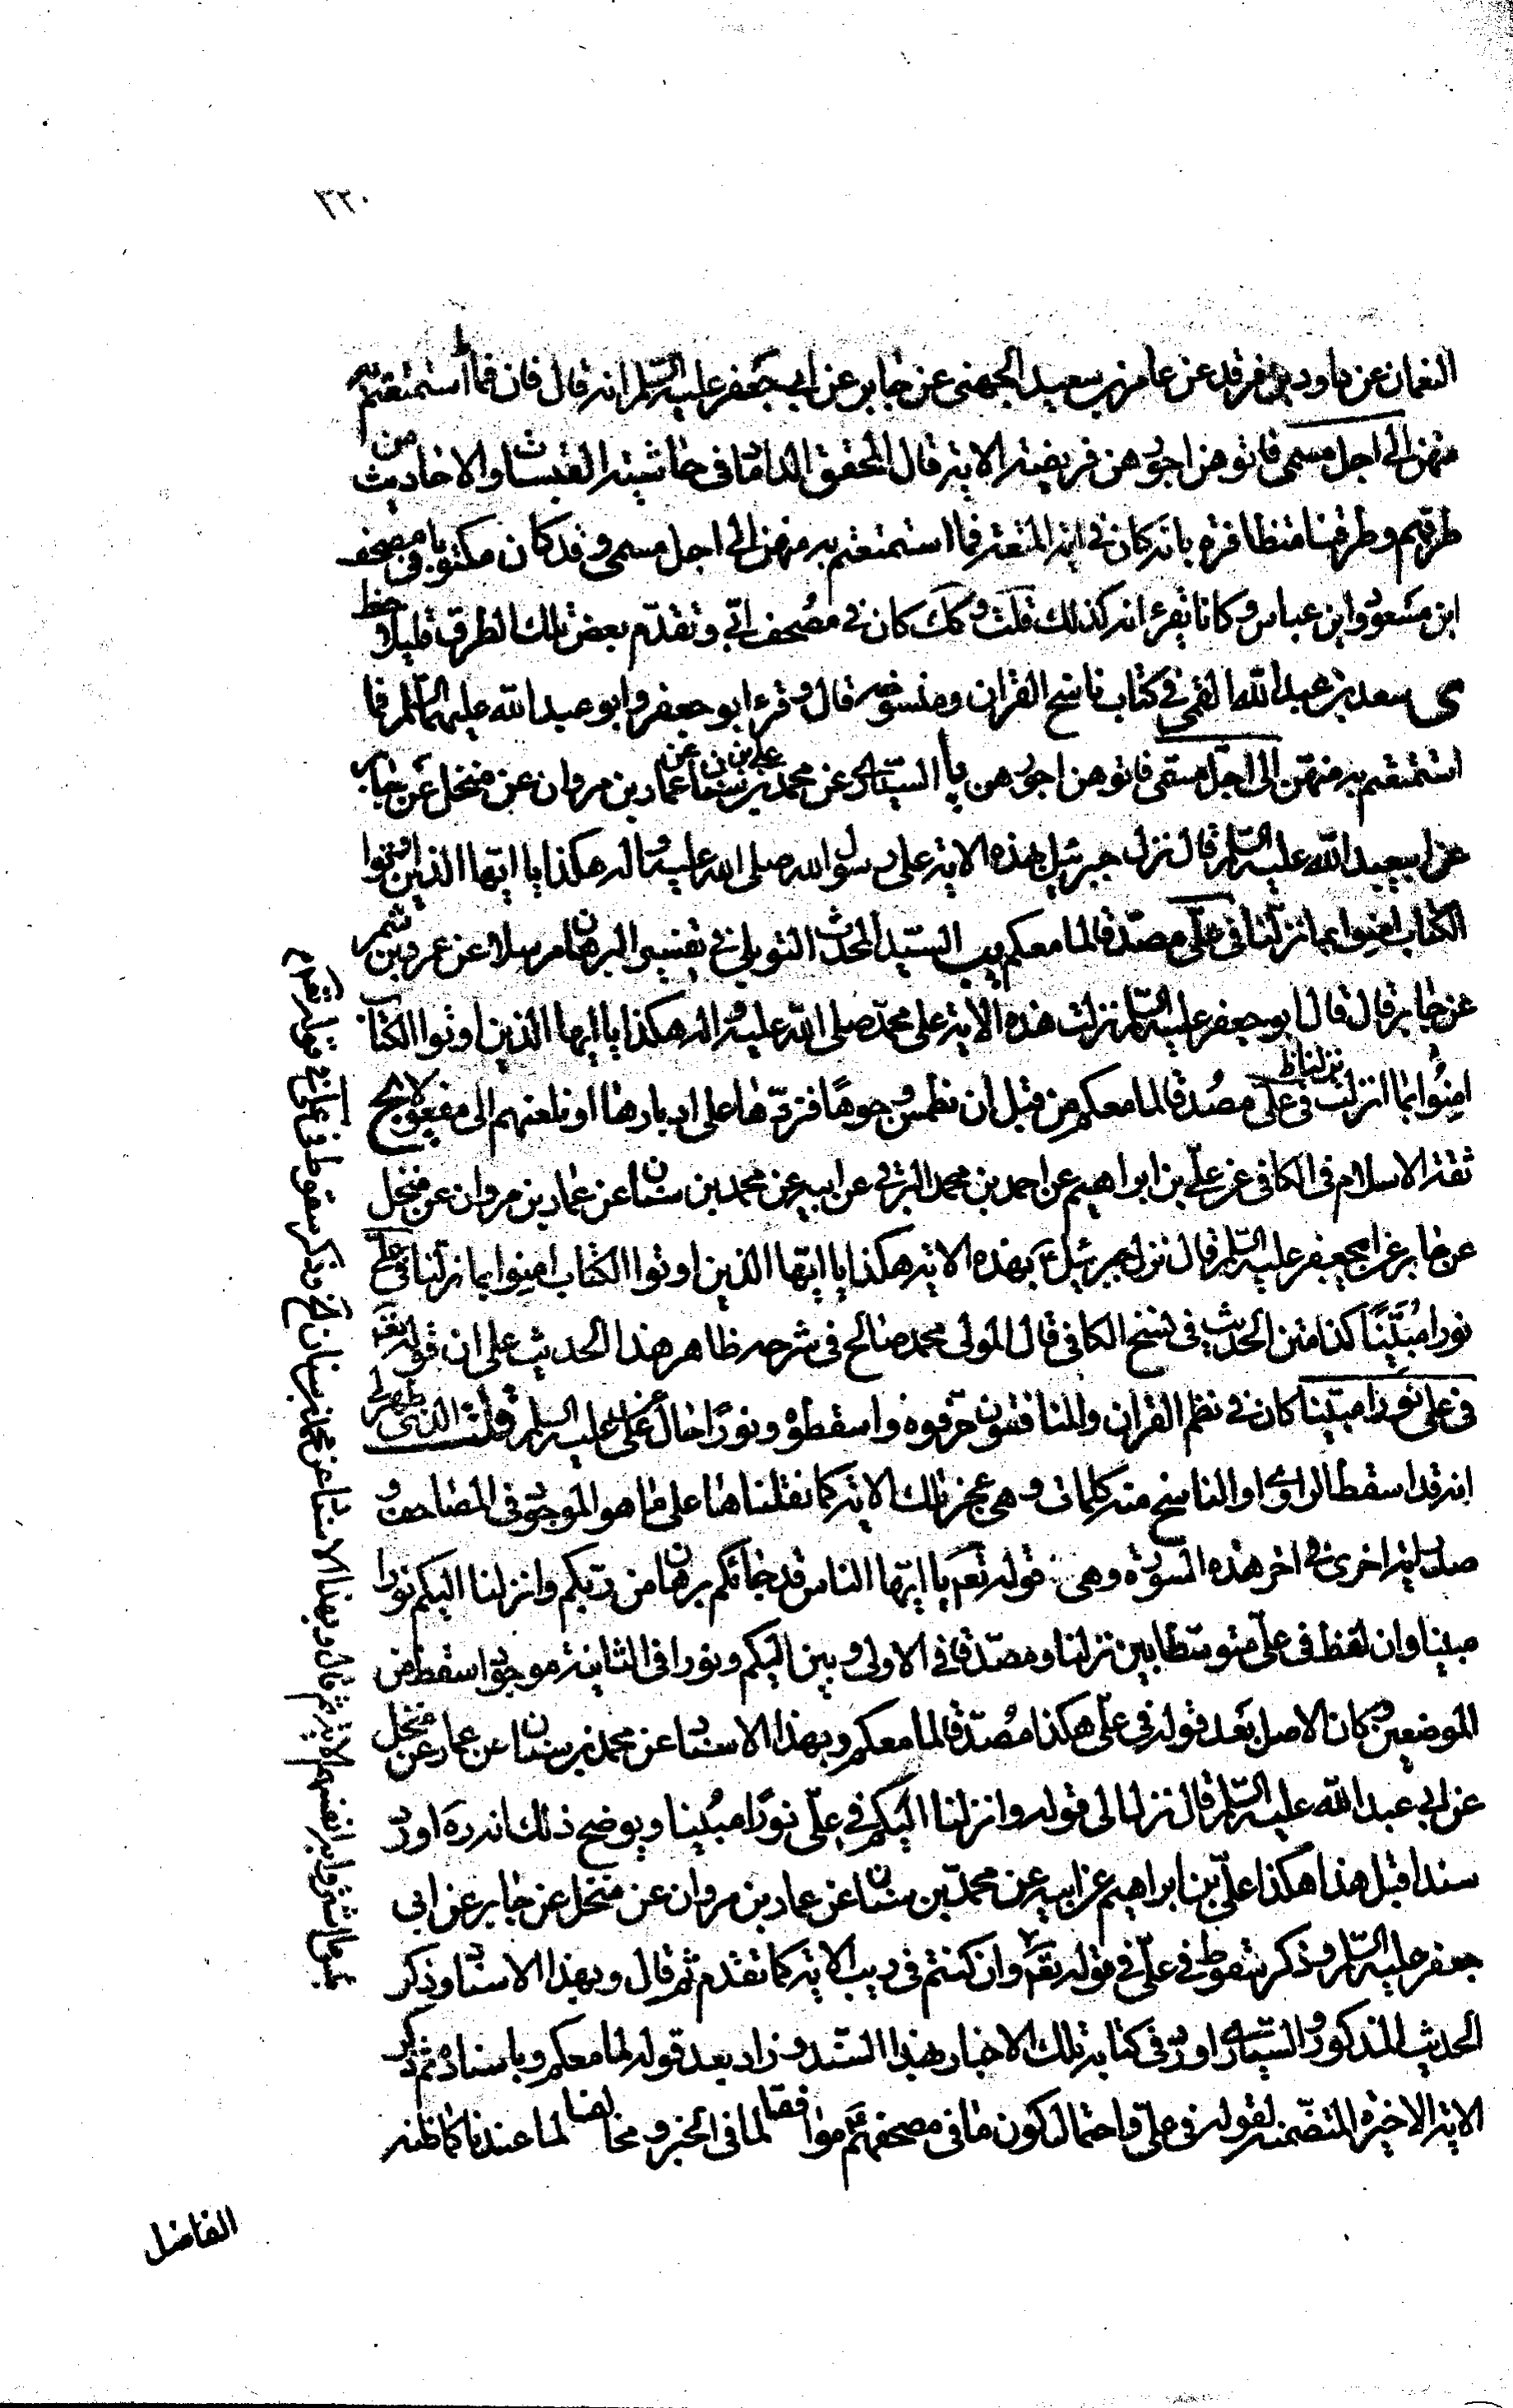 ٣٢٠
النعمان عن داود بن فرقد عن عامر بن سعيد الجهنى عن جابر عن ابى جعفر عليه السلم انه قال فان فما استمتعتم به
منهن الى اجل مسمى فاتوهن اجورهن فريضة الاية قال المحقق الداماد فى حاشية القبسات والاحاديث من
طرقهم وطرقنا متظافرة بانه كان فى اية المتعة فما استمتعتم به منهن الى اجل مسمى وقد كان مكتوبا فى مصحف
ابن مسعود وابن عباس وكانا يقرءانه كذلك قلت وكك كان فى مصحف ابى وتقدم بعض تلك الطرق قليلا
سعد بن عبد الله القمى فى كتاب ناسخ القران ومنسوخه قال وقرء ابو جعفر وابو عبد الله عليهما السلم فما
استمتعتم به منهن الى اجل مسمى فاتوهن اجورهن يا السيارى عن محمد بن على بن سنان عن عمار بن مروان عن منخل عن جابر
عن ابيعبد الله عليه السلم قال نزل جبرئيل بهذه الاية على رسول الله صلى الله عليه واله هكذا يا ايها الذين اوتوا
الكتاب امنوا بما نزلنا فى على مصدقا لما معكم يب السيد المحدث التوبلى فى تفسير البرهان مرسلا عن عمرو بن شمر
عن جابر قال قال ابو جعفر عليه السلم نزلت هذه الاية على محمد صلى الله عليه واله هكذا يا ايها الذين اوتوا الكتاب
امنوا بما انزلت فى على نزلنا ظ مصدقا لما معكم من قبل ان نطمس وجوها فنردها على ادبارها او نلعنهم الى مفعولا يج
ثقة الاسلام فى الكافى عن على بن ابراهيم عن احمد بن محمد البرقى عن ابيه عن محمد بن سنان عن عمار بن مروان عن منخل
عن جابر عن ابيجعفر عليه السلم قال نزل جبرئيل ع بهذه الاية هكذا يا ايها الذين اوتوا الكتاب امنوا بما نزلنا فى على
نورا مبينا كذا متن الحديث فى نسخ الكافى قال المولى محمد صالح فى شرحه ظاهر هذا الحديث على ان قوله تعالى
فى على نورا مبينا كان فى نظم القران والمنافقون حرفوه واسقطوه ونورا حال عن على عليه السلم قلت الذى يظهر لى
انه قد اسقط الراوى او الناسخ منه كلمات وهى عجز تلك الاية كما نقلناها على ما هو الموجود فى المصاحف و
صدر اية اخرى فى اخر هذه السورة وهى قوله تعم يا ايها الناس قد جائكم برهان من ربكم وانزلنا اليكم نورا
مبينا وان لفظ فى على متوسطا بين نزلنا ومصدقا فى الاولى وبين اليكم ونورا فى الثانية موجود اسقط من
الموضعين كان الاصل بعد قوله فى على هكذا مصدقا لما معكم وبهذا الاسناد عن محمد بن سنان عن عمار عن منخل
عن ابى عبد الله عليه السلم قال نزل الى قوله وانزلنا اليكم فى على نورا مبينا ويوضح ذلك انه ره اورد
سندا قبل هذا هكذا على بن ابراهيم عن ابيه عن محمد بن سنان عن عمار بن مروان عن منخل عن جابر عن ابى
جعفر عليه السلم وذكر سقوط فى على فى قوله تعم وان كنتم فى ريب الاية كما تقدم ثم قال وبهذا الاسناد وذكر
الحديث المذكور والسيارى اورد فى كتابه تلك الاخبار بهذا السند وزاد بعد قوله لما معكم وباسناده ثم ذكر
الاية الاخيرة المتضمنة لقوله فى على واحتمال كون ما فى مصحفهم ع موافقا لما فى الخبر ومخالفا لما عندنا كما ظنه
الفاضل